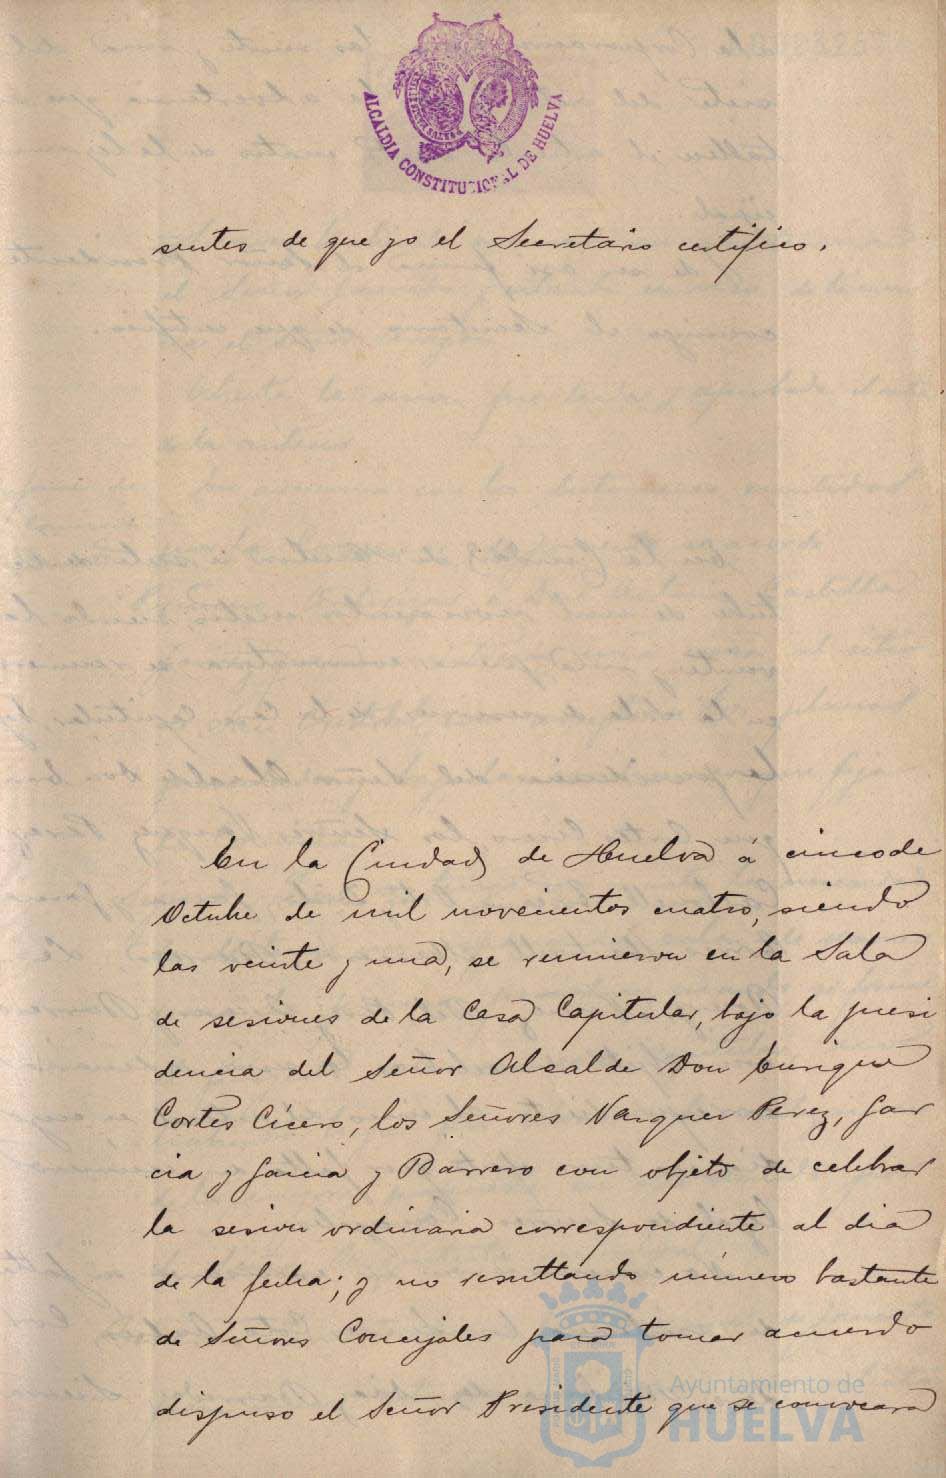 ALCALDIA CONSTITUCIONAL DE HUELVA
sentes de que yo el Secretario certifico.
En la Ciudad de Huelva á cinco de
Octubre de mil novecientos cuatro, siendo
las veinte y una, se reunieron en la Sala
de sesiones de la Casa Capitular, bajo la presi
dencia del Señor Alcalde Don Enrique
Cortés Cícero, los Señores Vazquez Perez, Gar
cia y Garcia y Barrero con objeto de celebrar
la sesion ordinaria correspondiente al dia
de la fecha; y no resultando número bastante
de Señores Concejales para tomar acuerdo
dispuso el Señor Presidente que se convocara
Ayuntamiento de
HUELVA